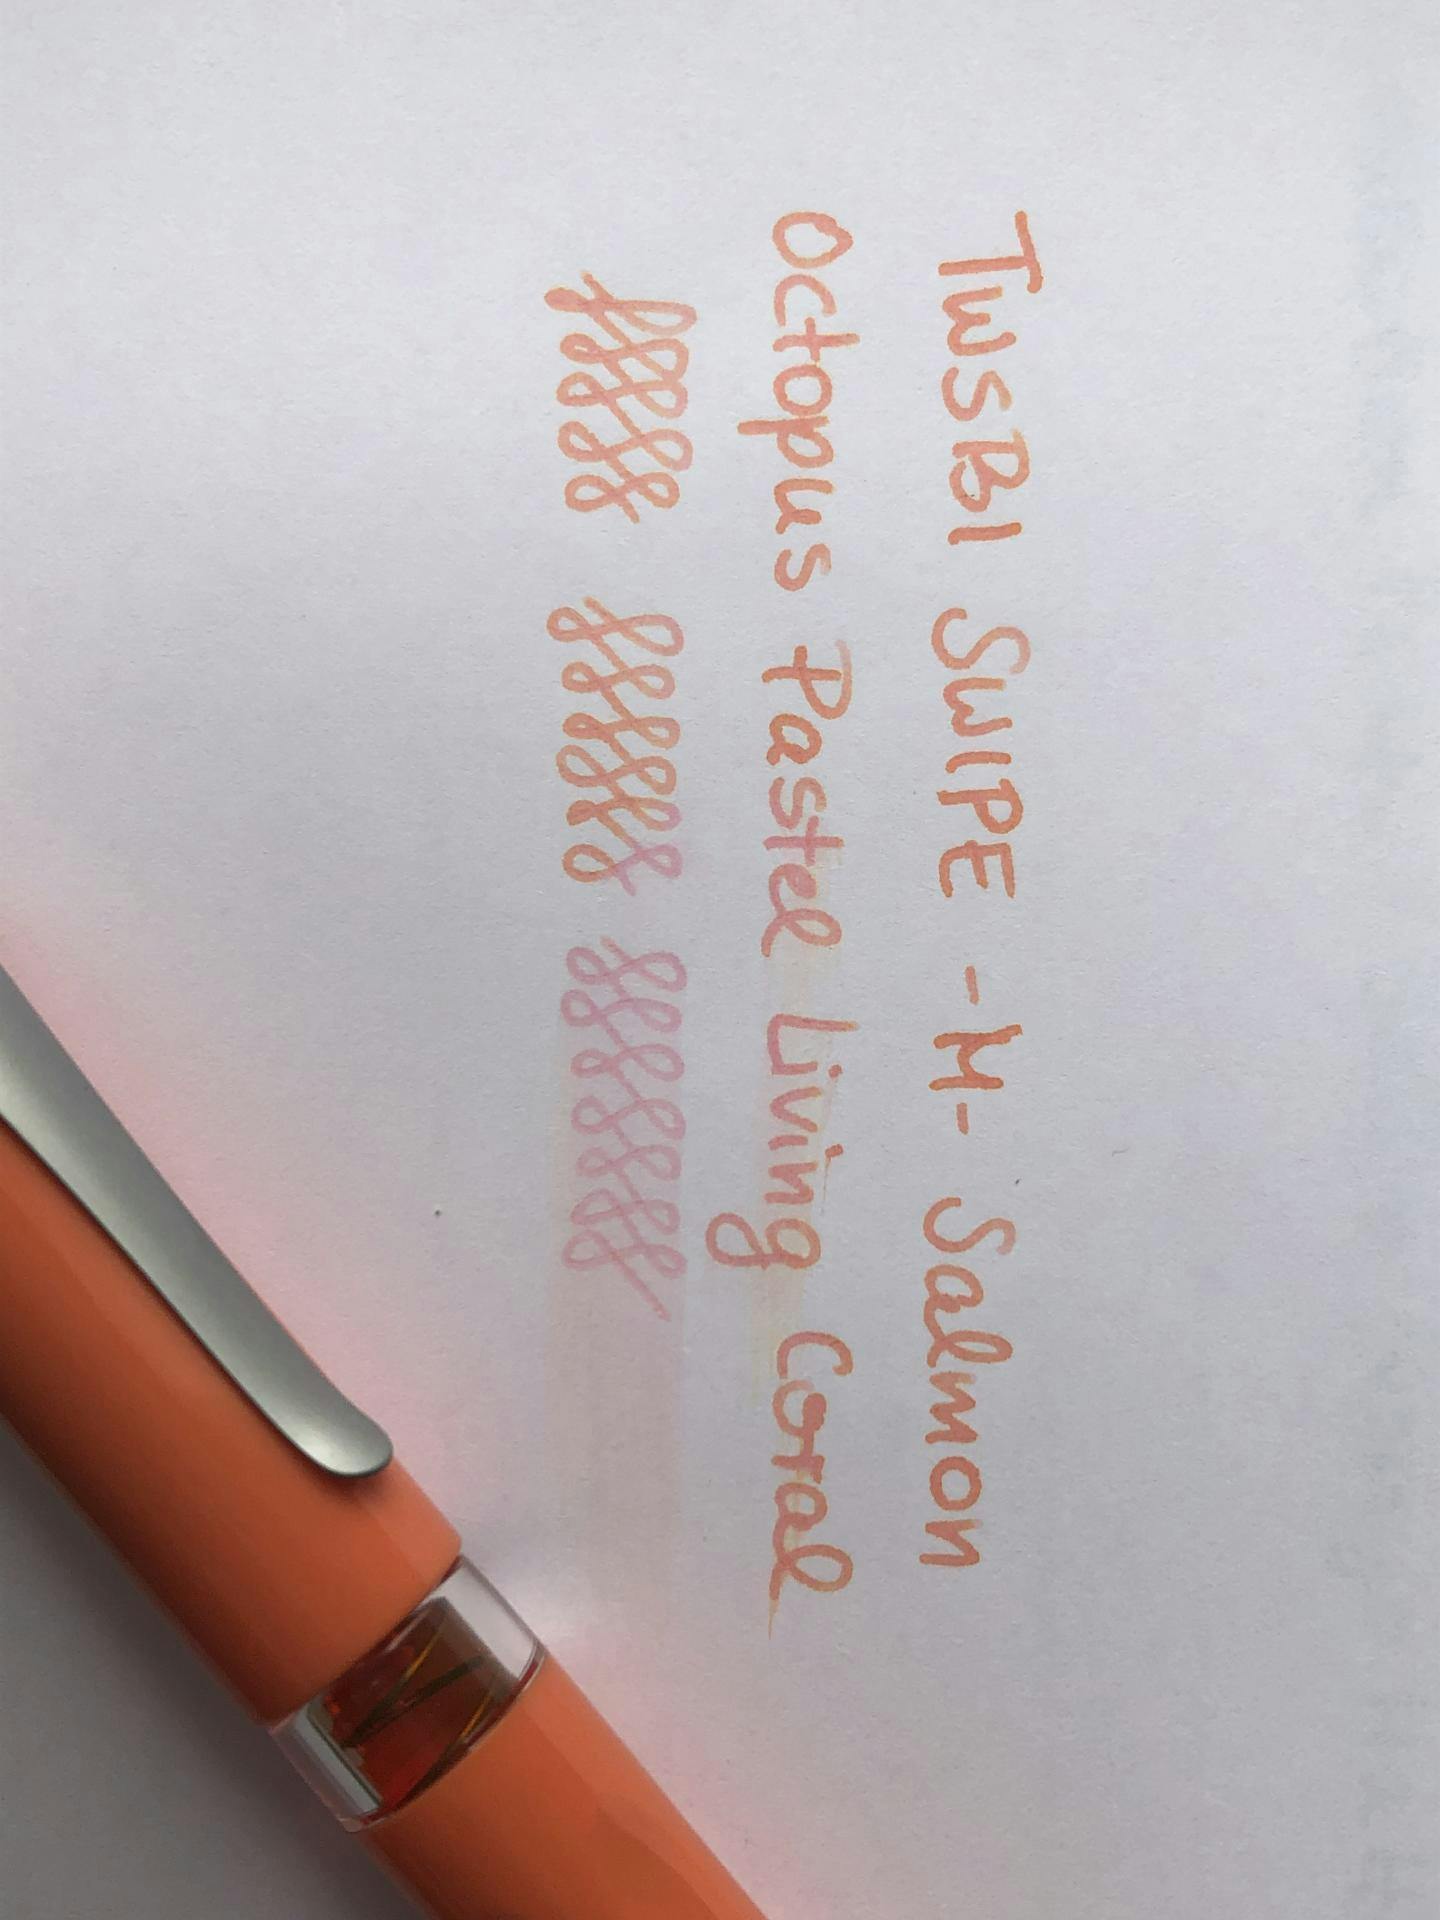 TWSBI SWIPE -M- Salmon
Octopus Pastel Living Coral